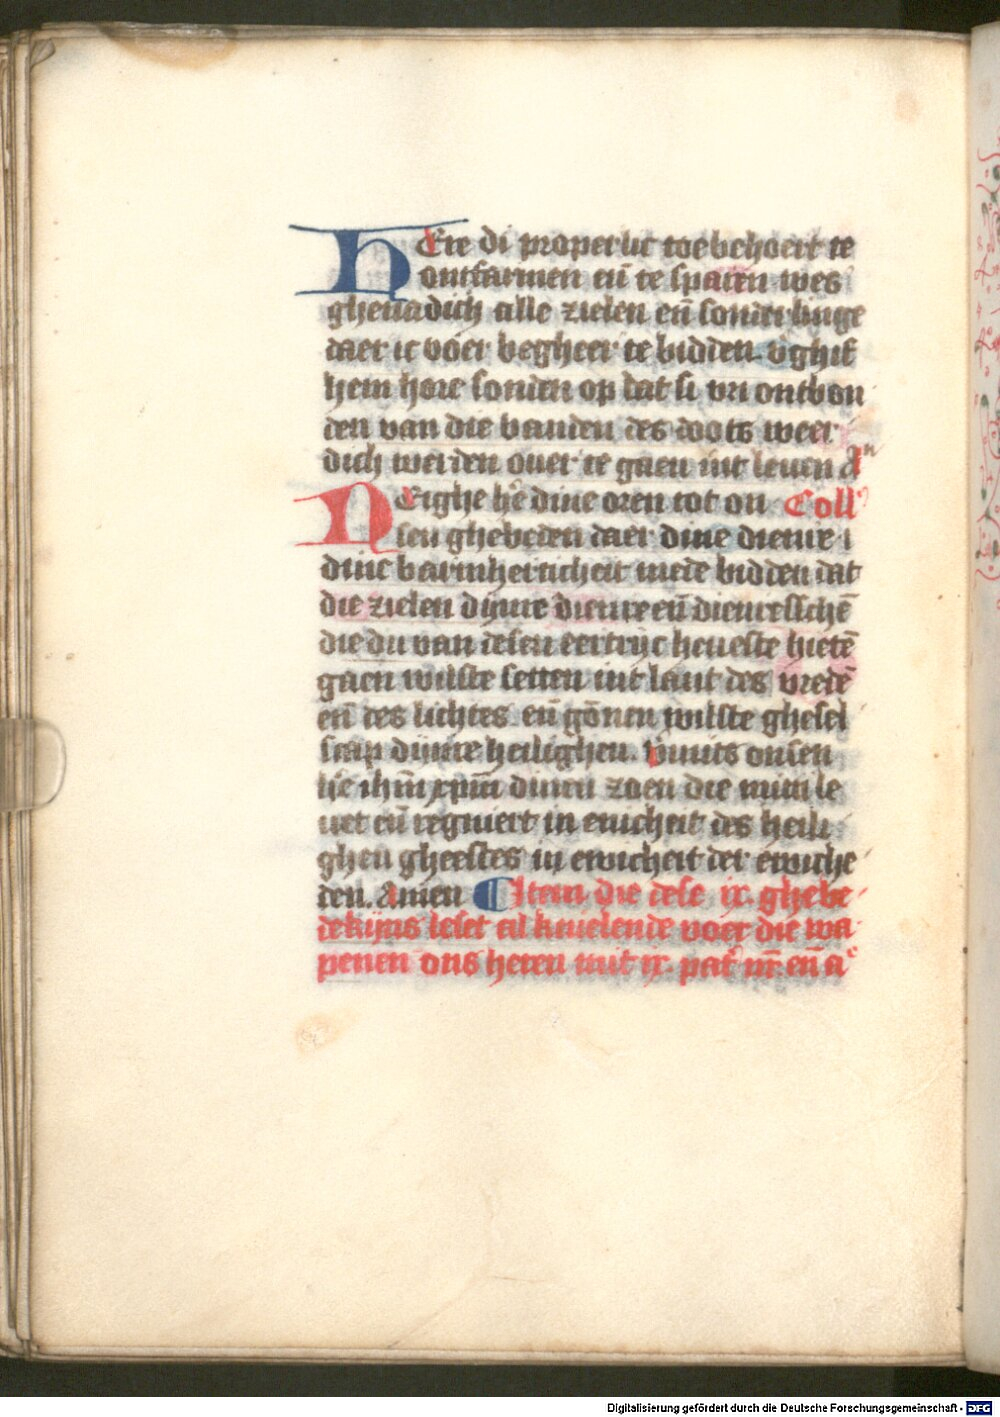 HEre di properlic toebehoert te
ontfarmen eñ te sparen wes
ghenadich alle zielen eñ sonderlinge
daer ic voer begheer te bidden. v̄ghif
hem hore sonden op dat si vri ontbon
den van die banden des doots weer
dich werden over te gaen int leven A
NEighe he᷑ dine oren tot on Coll᷒
sen ghebeden daer dine dienre i
dine barmherticheit mede bidden dat
die zielen dijnre dienre eñ dienressche᷑
die du van desen eertrijc heveste hiete᷑
gaen wilste setten int lant des vrede᷑
eñ des lichtes eñ go᷑nen wilste ghesel
scap dijnre heilighen. vmits onsen
he᷑ ihm᷑ xpm᷑ dinen zoen die mitti le
vet eñ regniert in enicheit des heili
ghen gheestes in ewicheit der ewiche
den. Amen Item die dese ix. ghebe
dekijns leset al knielende voer die wa
penen ons heren mit ix. pat᷑ nr᷑ eñ a
Digitalisierung gefördert durch die Deutsche Forschungsgemeinschaft - DFG